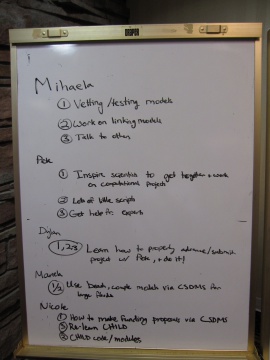 Mihaela
① Vetting/testing models
② Work on linking models
③ Talk to others
Pete
① Inspire scientists to get together + work
on computational projects
② Lots of little scripts
③ Get help for experts
Dylan
1,2,3 Learn how to properly
project w/ Pete, + do it!
1/2 Use couple models via CSDMS for
Nicole
① How to make funding proposals via CSDMS
② Re-learn CHILD
③ CHILD code/modules